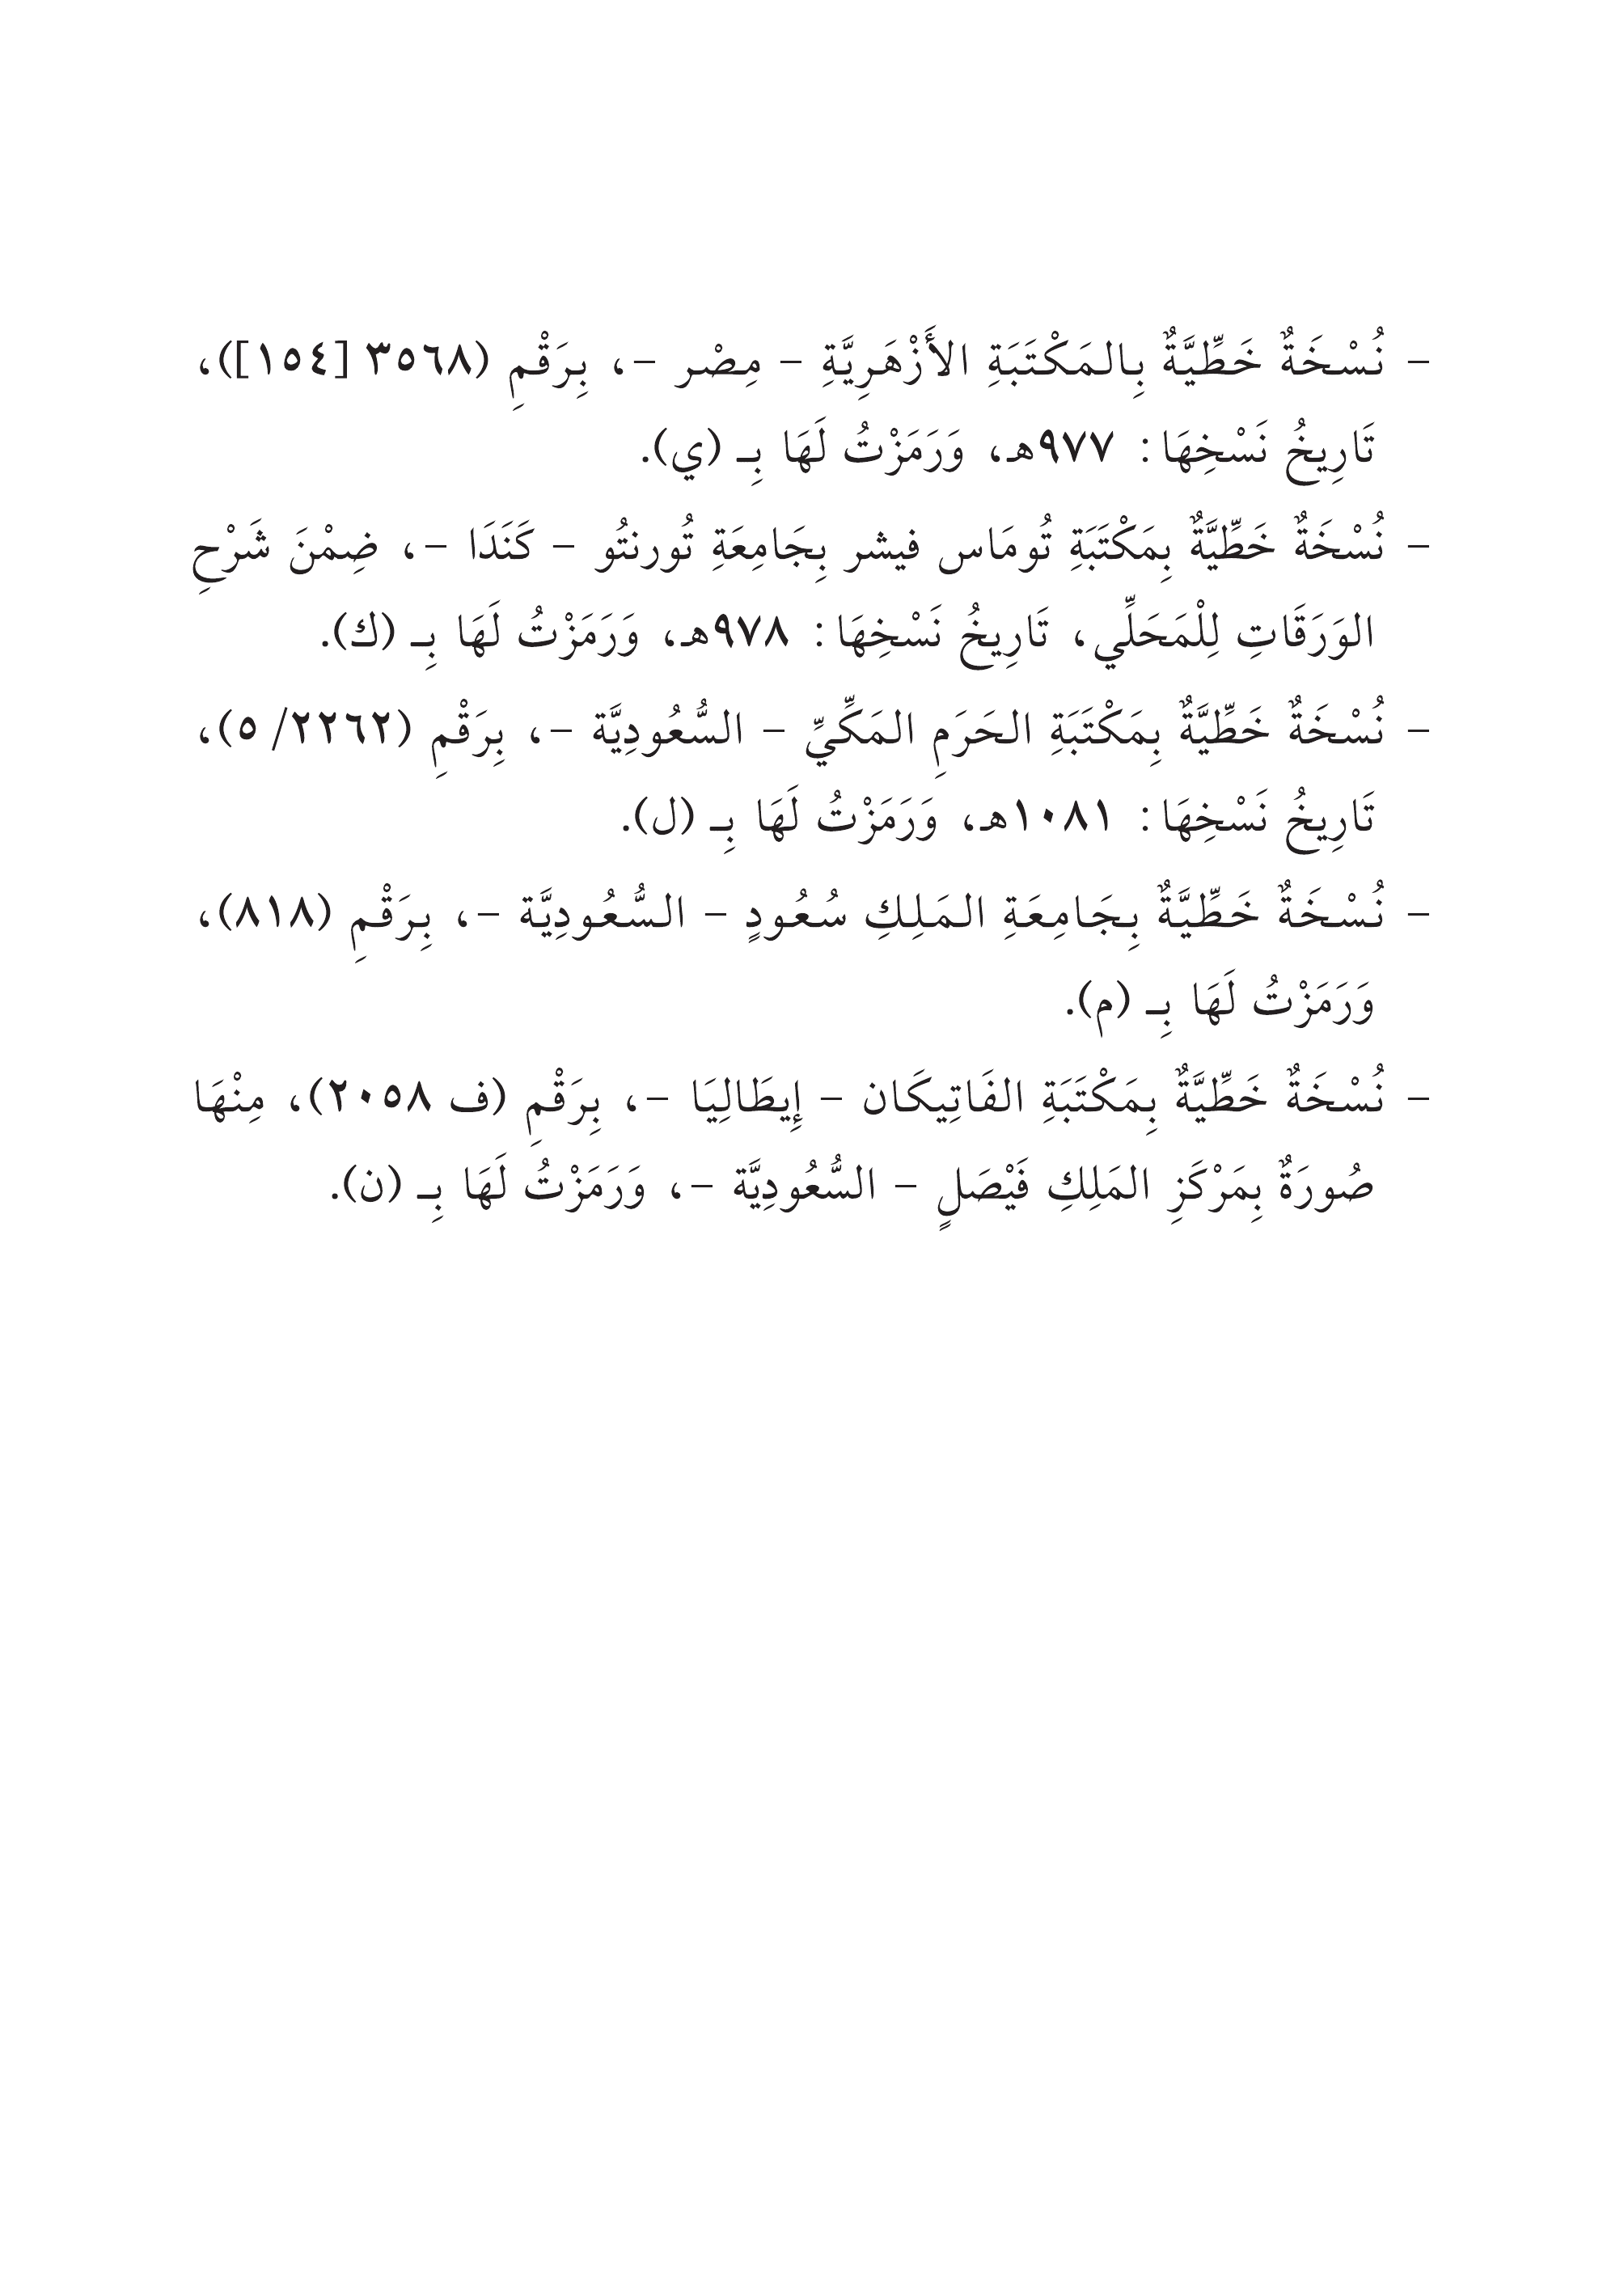 - نُسْخَةٌ خَطِّيَّةٌ بِالمَكْتَبَةِ الأَزْهَرِيَّةِ - مِصْر -، بِرَقْمِ (٣٥٦٨ [١٥٤])،
تَارِيخُ نَسْخِهَا: ٩٧٧هـ، وَرَمَزْتُ لَهَا بِـ (ي).
- نُسْخَةٌ خَطِّيَّةٌ بِمَكْتَبَةِ تُومَاس فيشر بِجَامِعَةِ تُورنتُو - كَنَدَا -، ضِمْنَ شَرْحِ
الوَرَقَاتِ لِلْمَحَلِّي، تَارِيخُ نَسْخِهَا: ٩٧٨هـ، وَرَمَزْتُ لَهَا بِـ (ك).
- نُسْخَةٌ خَطِّيَّةٌ بِمَكْتَبَةِ الحَرَمِ المَكِّيِّ - السُّعُودِيَّة -، بِرَقْمِ (٢٢٦٢/ ٥)،
تَارِيخُ نَسْخِهَا: ١٠٨١هـ، وَرَمَزْتُ لَهَا بِـ (ل).
- نُسْخَةٌ خَطِّيَّةٌ بِجَامِعَةِ المَلِكِ سُعُودٍ - السُّعُودِيَّة -، بِرَقْمِ (٨١٨)،
وَرَمَزْتُ لَهَا بِـ (م).
- نُسْخَةٌ خَطِّيَّةٌ بِمَكْتَبَةِ الفَاتِيكَان - إِيطَالِيَا -، بِرَقْمِ (ف ٢٠٥٨)، مِنْهَا
صُورَةٌ بِمَرْكَزِ المَلِكِ فَيْصَلٍ - السُّعُودِيَّة -، وَرَمَزْتُ لَهَا بِـ (ن).